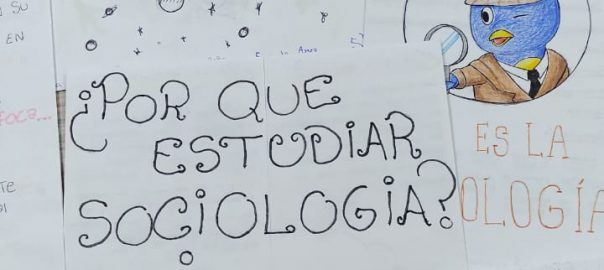 SU
EN
¿POR QUE
ESTUDIAR
SOCIOLOGIA?
ES LA
OLOGÍA